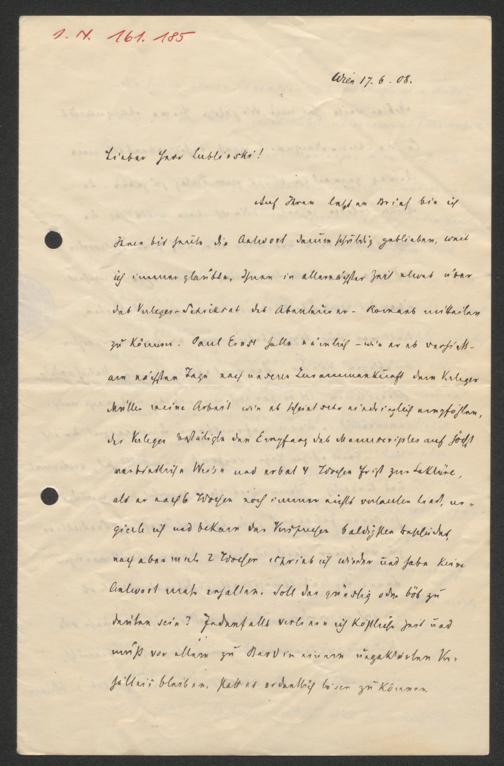 I. N. 161.185
Wien 17. 6. 08.
Lieber Herr Lublinski!
Auf Ihren letzten Brief bin ich
Ihnen bis heute die Antwort darum schuldig geblieben, weil
ich immer glaubte, Ihnen in allernächster Zeit etwas über
das Verleger-Schicksal des Abenteurer-Romans mitteilen
zu können. Paul Ernst hatte nämlich – wie er es versprach –
am nächsten Tage nach unserer Zusammenkunft dem Verleger
Müller meine Arbeit wie es scheint sehr eindringlich empfohlen,
der Verleger bestätigte den Empfang des Manuscriptes auf höchst
verbindliche Weise und erbat 4 Wochen Frist zur Lektüre,
als er nach 6 Wochen noch immer nichts verlauten liess, ur-
gierte ich und bekam das Versprechen baldigsten Bescheides,
nach abermals 2 Wochen schrieb ich wieder und habe keine
Antwort mehr erhalten. Soll das günstig oder bös zu
deuten sein? Jedenfalls verliere ich köstliche Zeit und
muß vor allem zu in einem ungeklärten Ver-
hältnis bleiben, statt es ordentlich lösen zu können